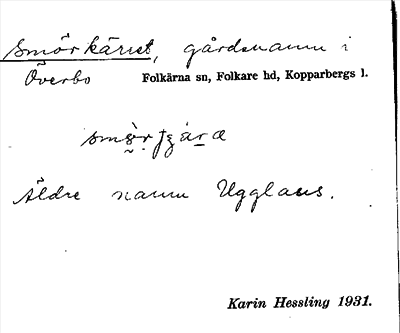 Smörkärret, gårdsnamn i
Överbo Folkärna sn, Folkare hd, Kopparbergs l.
Äldre namn Ugglans.
Karin Hessling 1931.